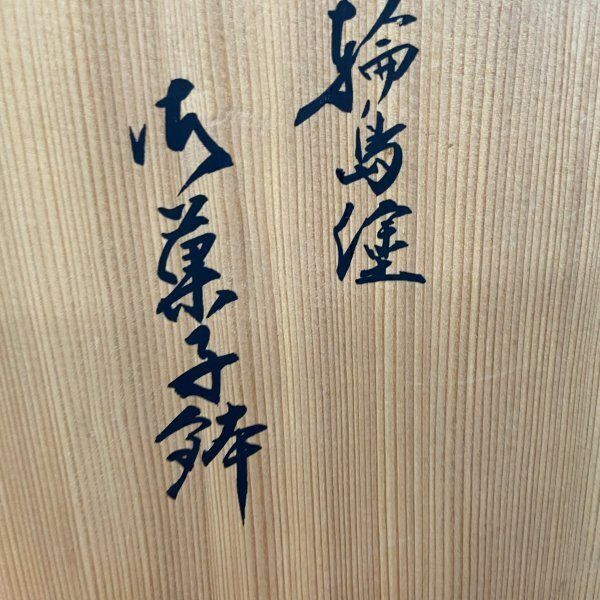 輪島塗
御菓子鉢